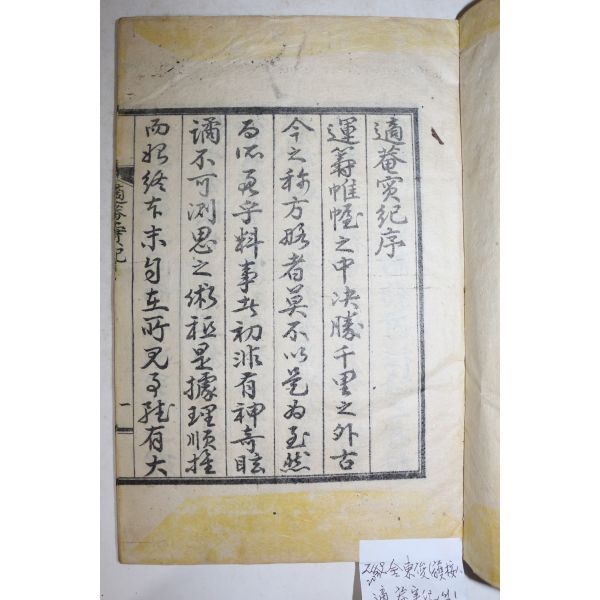 適菴實紀序
運籌帷幄之中决勝千里之外古
今之称方略者莫不以是为至然
而
乎料事此初非有神奇眩
譎不可測思之術秖是據理順推
而始終本末自在所見耳雖有大
適菴實紀
一
金東俊
適菴實紀